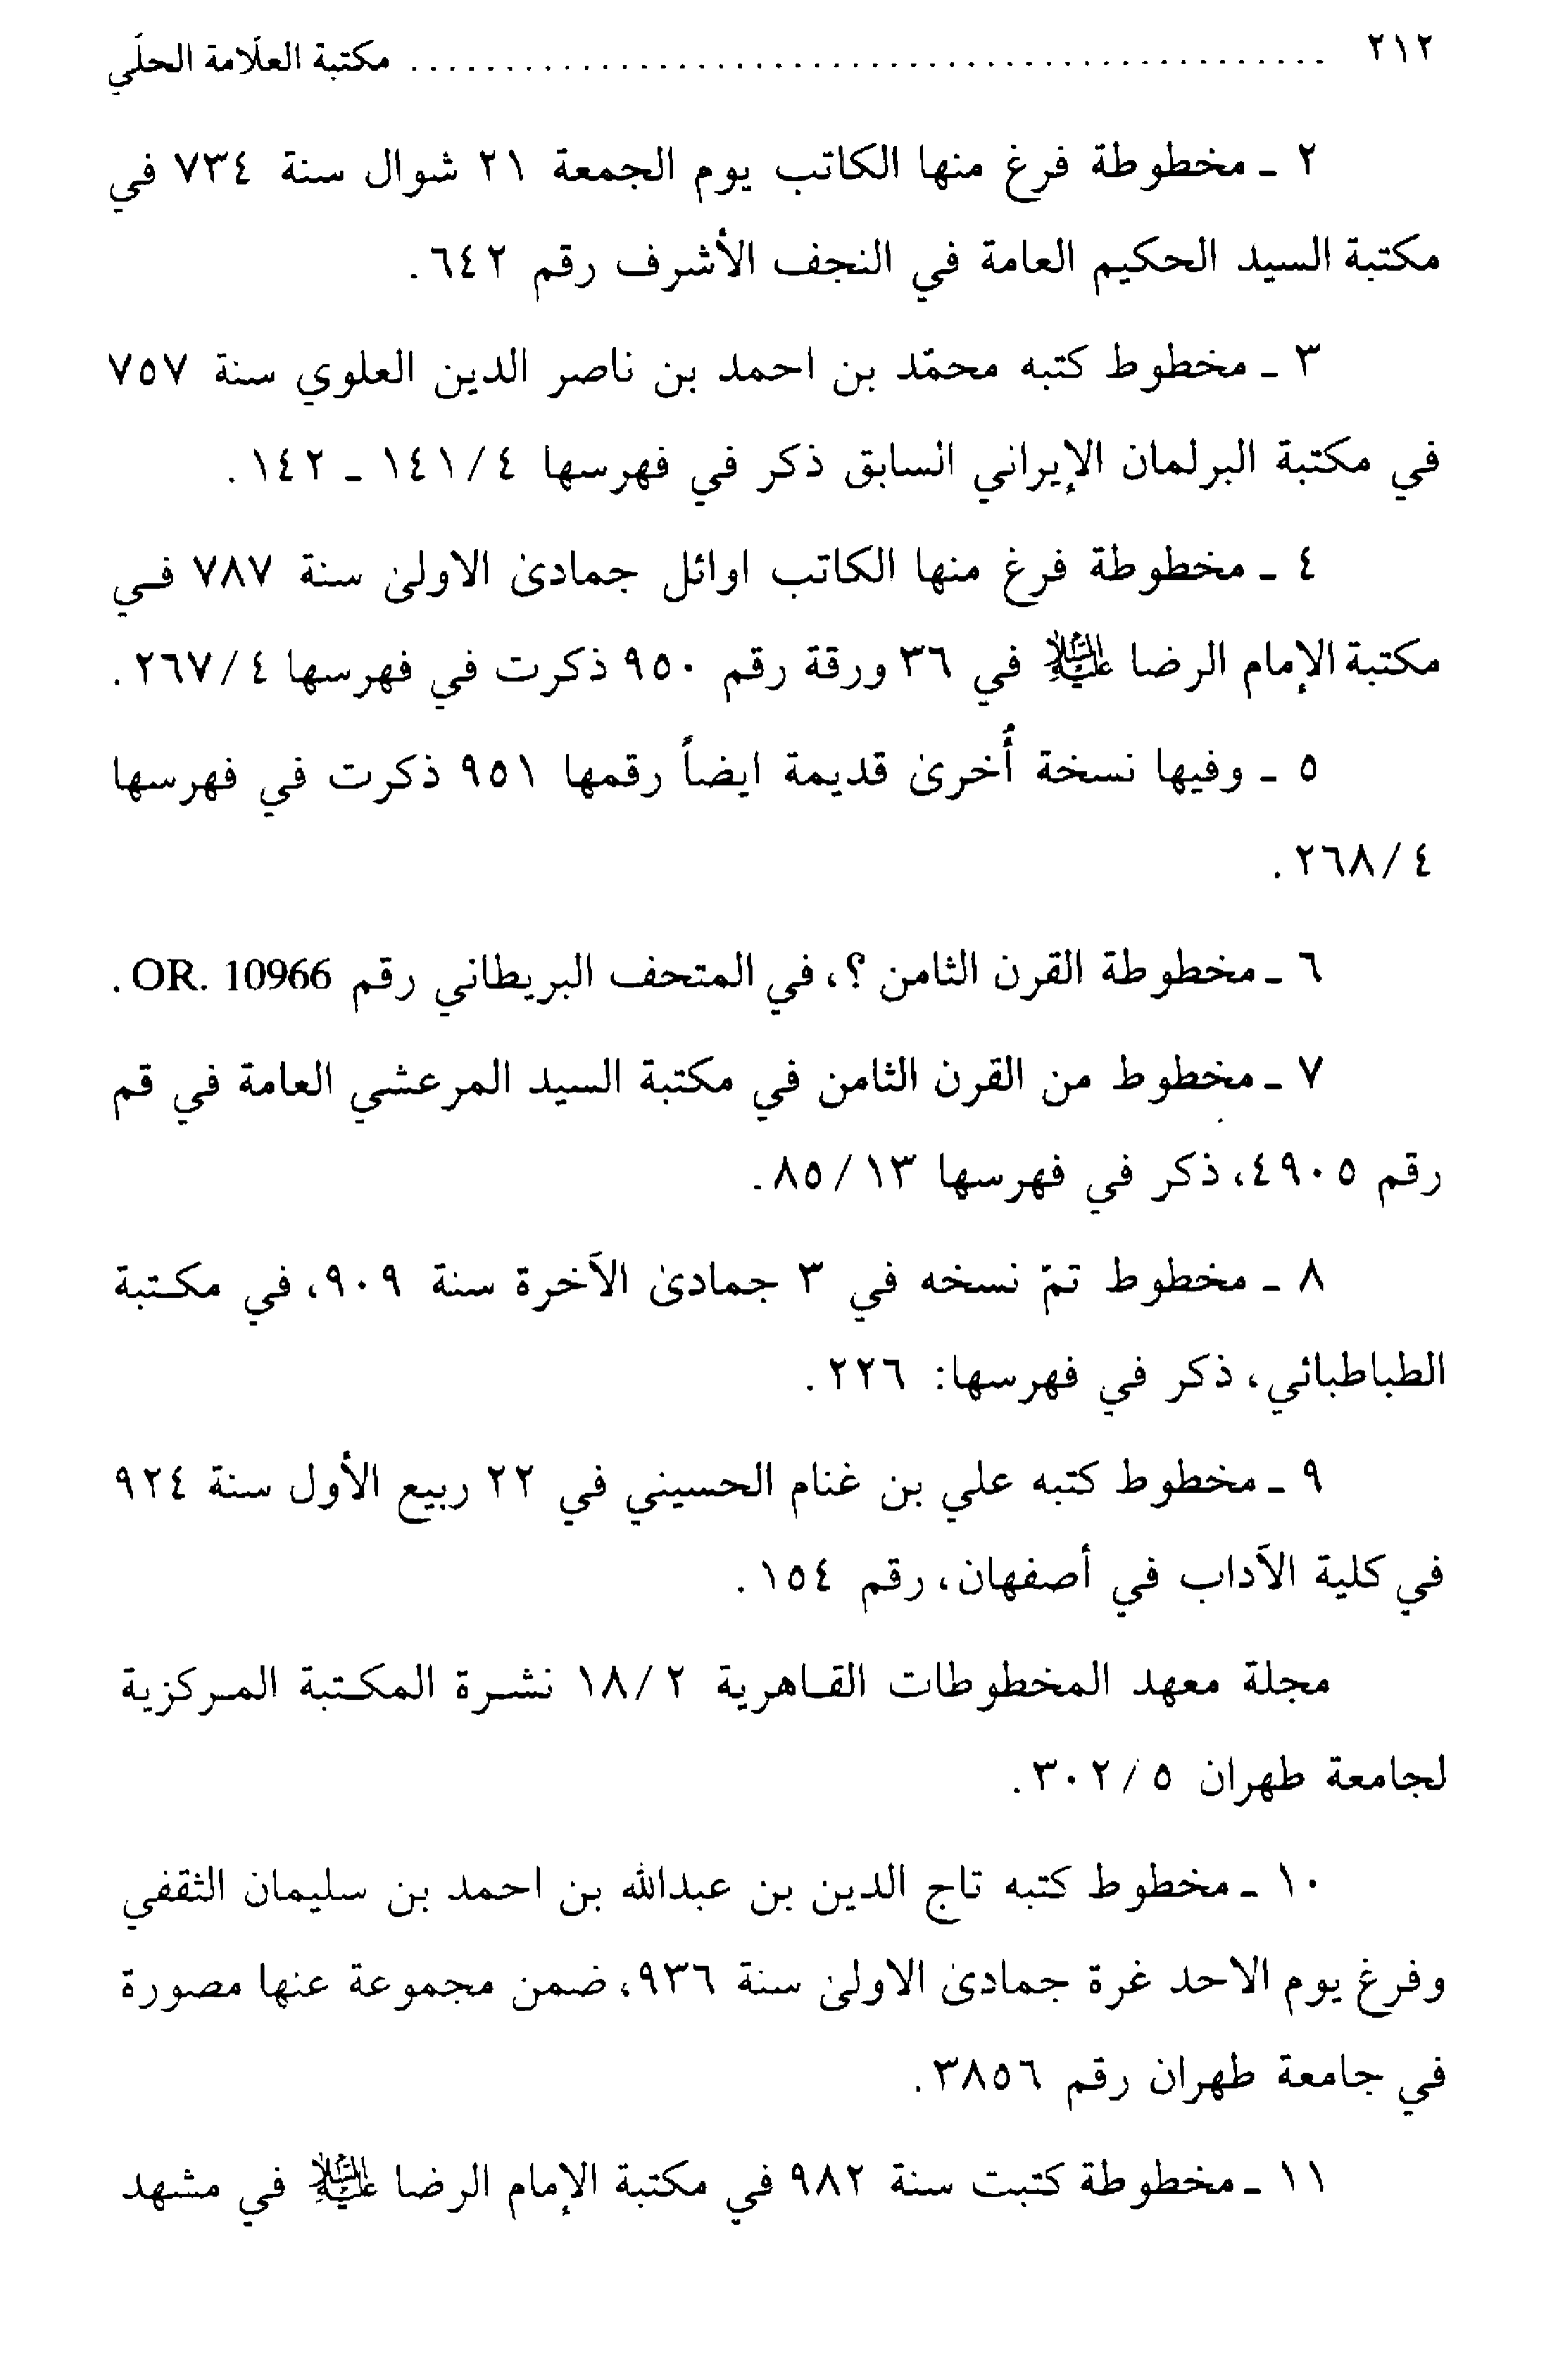 ٢١٢ .................................................. مكتبة العلّامة الحلّي
٢ ـ مخطوطة فرغ منها الكاتب يوم الجمعة ٢١ شوال سنة ٧٣٤ في
مكتبة السيد الحكيم العامة في النجف الأشرف رقم ٦٤٢.
٣ ـ مخطوط كتبه محمّد بن احمد بن ناصر الدين العلوي سنة ٧٥٧
في مكتبة البرلمان الإيراني السابق ذكر في فهرسها ٤/١٤١ ـ ١٤٢.
٤ ـ مخطوطة فرغ منها الكاتب اوائل جمادىٰ الاولىٰ سنة ٧٨٧ فـي
مكتبة الإمام الرضا عليه‌السلام في ٣٦ ورقة رقم ٩٥٠ ذكرت في فهرسها ٤/٢٦٧.
٥ ـ وفيها نسخة أُخرىٰ قديمة ايضاً رقمها ٩٥١ ذكرت في فهرسها
٤/٢٦٨.
٦ ـ مخطوطة القرن الثامن ؟، في المتحف البريطاني رقم OR. 10966.
٧ ـ مخطوط من القرن الثامن في مكتبة السيد المرعشي العامة في قم
رقم ٤٩٠٥، ذكر في فهرسها ١٣/٨٥.
٨ ـ مخطوط تمّ نسخه في ٣ جمادىٰ الآخرة سنة ٩٠٩، في مكـتبة
الطباطبائي، ذكر في فهرسها: ٢٢٦.
٩ ـ مخطوط كتبه علي بن غنام الحسيني في ٢٢ ربيع الأول سنة ٩٢٤
في كلية الآداب في أصفهان، رقم ١٥٤.
مجلة معهد المخطوطات القـاهرية ٢/١٨ نشـرة المكـتبة المـركزية
لجامعة طهران ٥/٣٠٢.
١٠ ـ مخطوط كتبه تاج الدين بن عبدالله بن احمد بن سليمان الثقفي
وفرغ يوم الاحد غرة جمادىٰ الاولىٰ سنة ٩٣٦، ضمن مجموعة عنها مصورة
في جامعة طهران رقم ٣٨٥٦.
١١ ـ مخطوطة كتبت سنة ٩٨٢ في مكتبة الإمام الرضا عليه‌السلام في مشهد